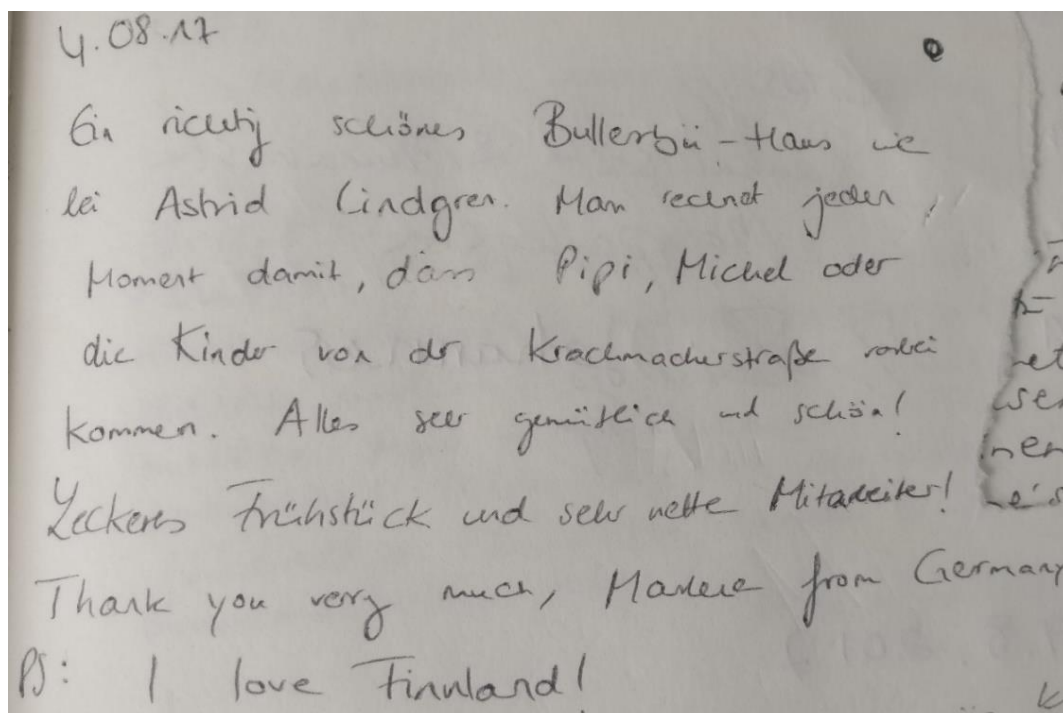 4.08.17
Ein richtig schönes Bullerbü-Haus wie
bei Astrid Lindgren. Man rechnet jeden
Moment damit, dass Pipi, Michel oder
die Kinder von der Krachmacherstraße vorbei
kommen. Alles seer gemütlich und schön!
Leckeres Frühstück und sehr nette Mitarbeiter!
Thank you very much, from Germany
PS: I love Finnland!